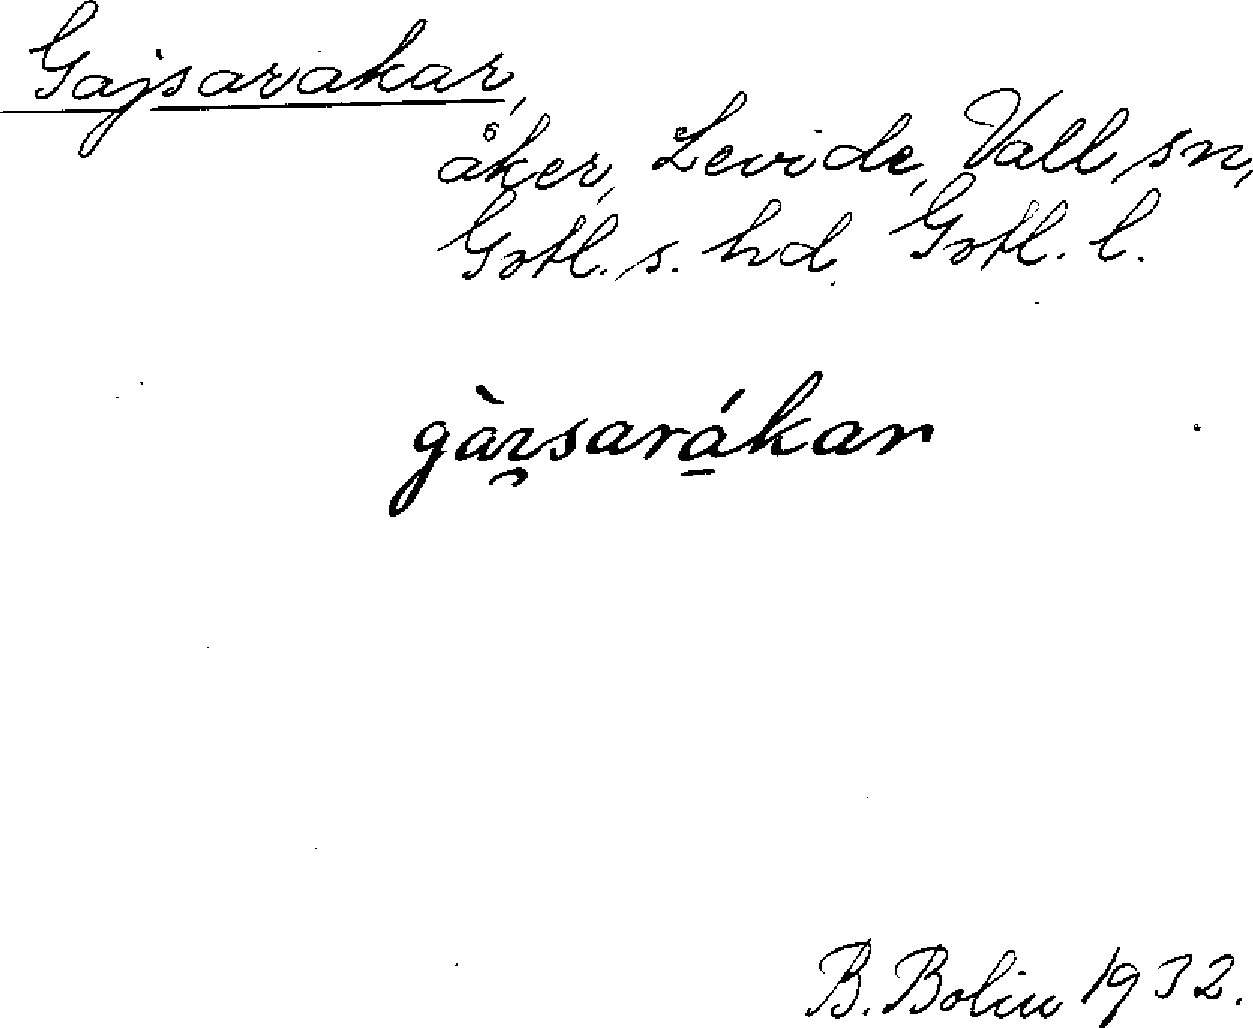 Gajsarakar,
åker, Levide, Vall sn,
Gotl. s. hd. Gotl. l.
gàɪ̯sarákar
B. Bolin 1932.